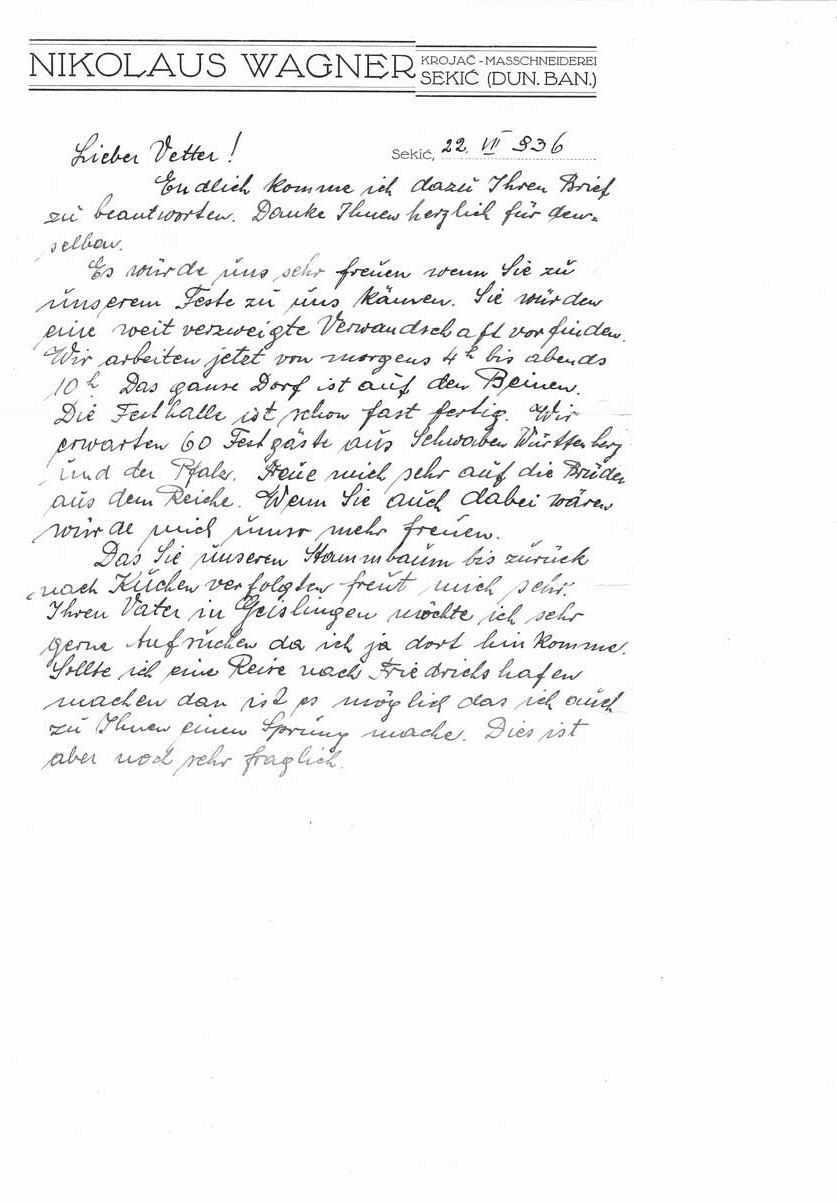 NIKOLAUS WAGNER
KROJAČ - MASSCHNEIDEREI
SEKIĆ (DUN. BAN.)
Sekić, 22. VII 936
Lieber Vetter!
Endlich komme ich dazu Ihren Brief
zu beantworten. Danke Ihnen herzlich für den-
selben.
Es würde uns sehr freuen wenn Sie zu
unserem Feste zu uns kämen. Sie würden
eine weit verzweigte Verwandschaft vorfinden.
Wir arbeiten jetzt von morgens 4h bis abends
10h. Das ganse Dorf ist auf den Beinen.
Die Festhalle ist schon fast fertig. Wir
erwarten 60 Festgäste aus Schwaben Württenberg
und der Pfalz. Freue mich sehr auf die Brüder
aus dem Reiche. Wenn Sie auch dabei wären
würde mich umso mehr freuen.
Das Sie unseren Stammbaum bis zurück
nach Kuchen verfolgten freut mich sehr.
Ihren Vater in Geislingen möchte ich sehr
gerne Aufsuchen da ich ja dort hin komme.
Sollte ich eine Reise nach Friedrichshafen
machen dan ist es möglich das ich auch
zu Ihnen einen Sprung mache. Dies ist
aber noch sehr fraglich.